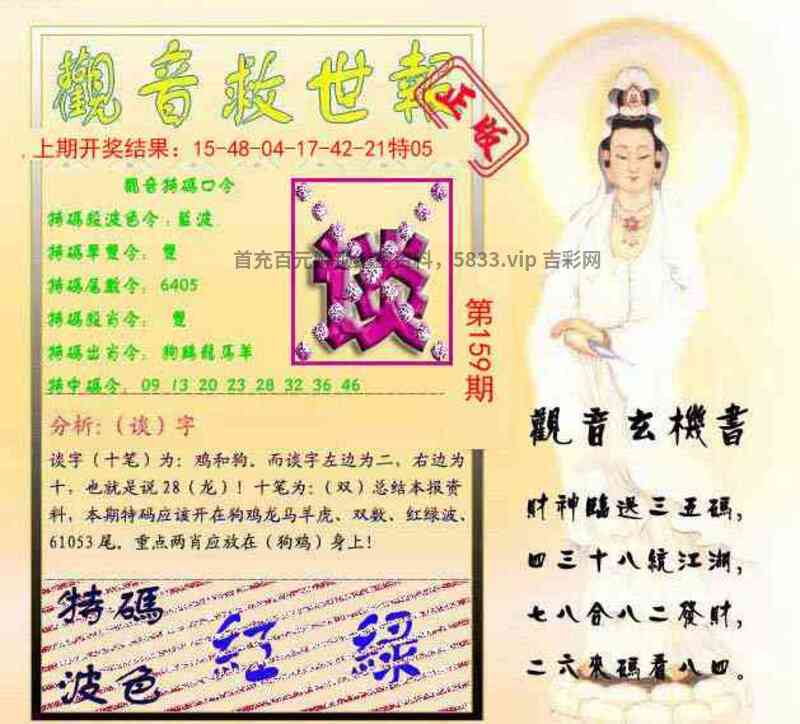 觀音救世報
正版
上期开奖结果：15-48-04-17-42-21特05
觀音特碼口令
特碼段波色令：藍波
特碼單雙令： 雙
特碼尾數令：6405
特碼段肖令： 雙
特碼出肖令：狗鷄龍馬羊
特中碼令：09 13 20 23 28 32 36 46
谈
首充百元 料，5833.vip 吉彩网
第159期
分析：（谈）字
谈字（十笔）为：鸡和狗．而谈字左边为二，右边为
十，也就是说28（龙）！十笔为：（双）总结本报资
料，本期特码应该开在狗鸡龙马羊虎、双数、红绿波、
61053尾．重点两肖应放在（狗鸡）身上！
特碼
波色
紅 綠
觀音玄機書
財神臨送三五碼，
四三十八統江湖，
七八合八二發財，
二六來碼看八四。